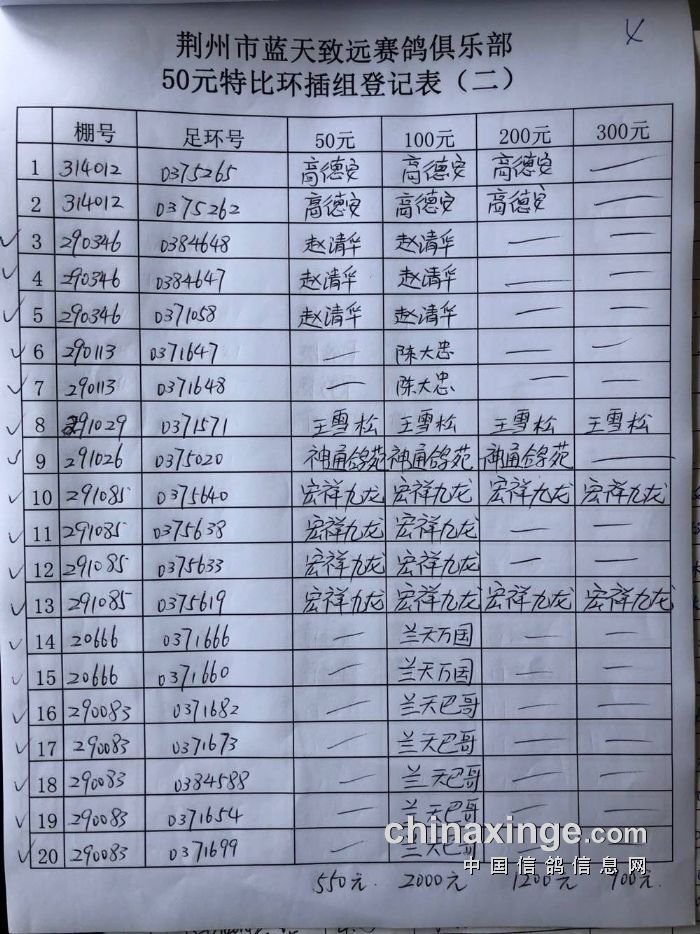 4
荆州市蓝天致远赛鸽俱乐部
50元特比环插组登记表（二）
棚号 足环号 50元 100元 200元 300元
1 314012 0375265 高德安 高德安 高德安 —
2 314012 0375262 高德安 高德安 高德安 —
✓ 3 290346 0384648 赵清华 赵清华 — —
✓ 4 290346 0384647 赵清华 赵清华 — —
✓ 5 290346 0371058 赵清华 赵清华 — —
✓ 6 290113 0371647 — 陈大忠 — —
✓ 7 290113 0371648 — 陈大忠 — —
✓ 8 291029 0371571 王雪松 王雪松 王雪松 王雪松
✓ 9 291026 0375020 神通鸽苑 神通鸽苑 神通鸽苑 —
✓ 10 291085 0375640 宏祥九龙 宏祥九龙 宏祥九龙 宏祥九龙
✓ 11 291085 0375638 宏祥九龙 宏祥九龙 — —
✓ 12 291085 0375633 宏祥九龙 宏祥九龙 — —
✓ 13 291085 0375619 宏祥九龙 宏祥九龙 宏祥九龙 宏祥九龙
✓ 14 20666 0371666 — 兰天万国 — —
✓ 15 20666 0371660 — 兰天万国 — —
✓ 16 290083 0371682 — 兰天巴哥 — —
✓ 17 290083 0371673 — 兰天巴哥 — —
✓ 18 290083 0384588 — 兰天巴哥 — —
✓ 19 290083 0371654 — 兰天巴哥 — —
✓ 20 290083 0371699 — 兰天巴哥 — —
550元 2000元 1200元 900元
chinaxinge.com
中国信鸽信息网